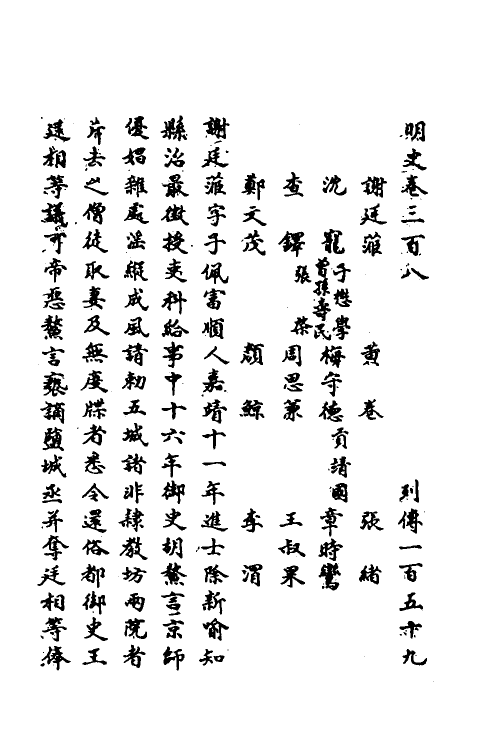 明史卷三百八　列傳一百五十九
謝廷蒞　黃卷　張緒
沈寵　子懋學　曾孫壽民　梅守德　貢靖國　章時鸞
查鐸　張棨　周思兼　王叔果
鄭文茂　顏鯨　李渭
謝廷蒞字子佩富順人嘉靖十一年進士除新喻知
縣治最徵授吏科給事中十六年御史胡鰲言京師
優娼雜處淫縱成風請勅五城諸非隸敎坊兩院者
斥去之僧徒取妻及無度牒者悉令還俗都御史王
廷相等議可帝惡鰲言褻謫鹽城丞并奪廷相等俸